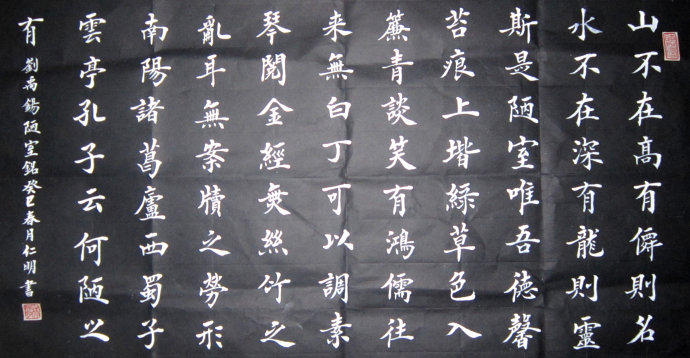 山不在高有僊則名
水不在深有龍則靈
斯是陋室唯吾德馨
苔痕上堦綠草色入
簾青談笑有鴻儒往
来無白丁可以調素
琴閱金經無絲竹之
亂耳無案牘之勞形
南陽諸葛廬西蜀子
雲亭孔子云何陋之
有 劉禹錫陋室銘癸巳春月仁明書